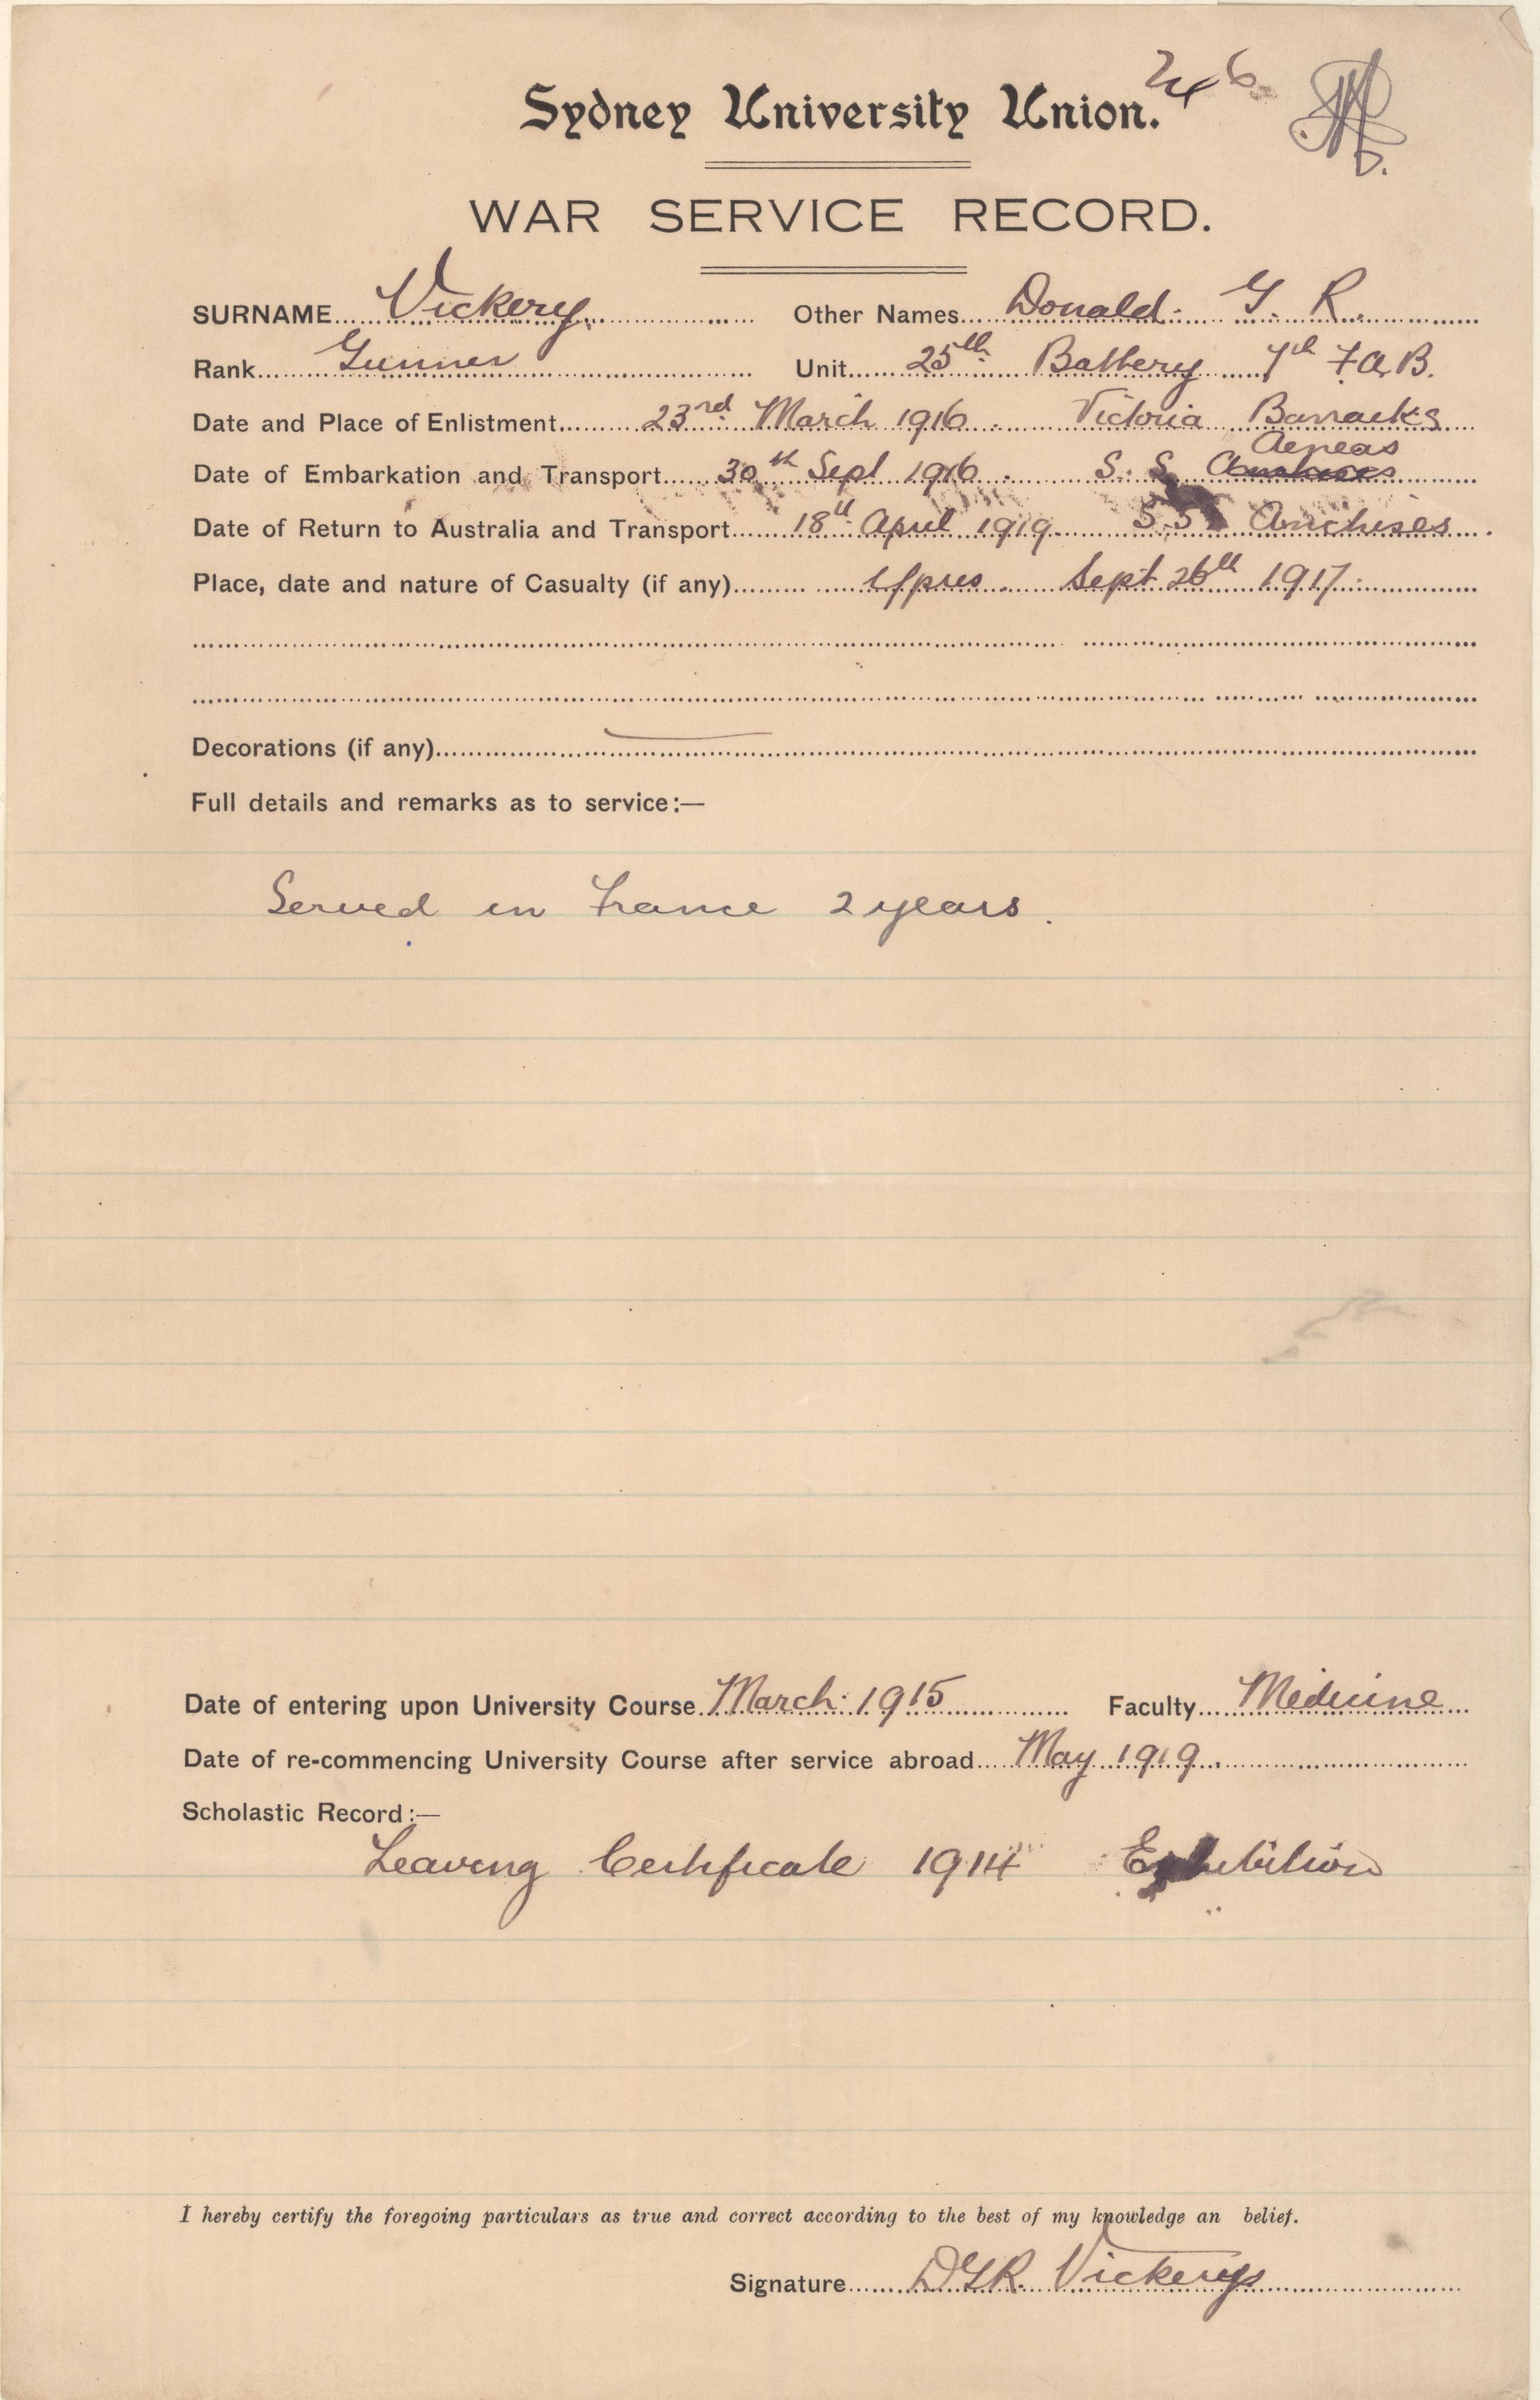 Sydney University Union. 246
WAR SERVICE RECORD.
SURNAME Vickery. Other Names Donald. G. R.
Rank Gunner Unit 25th Battery 7th F.A.B.
Date and Place of Enlistment 23rd March 1916. Victoria Barracks
Aeneas
Date of Embarkation and Transport 30th Sept 1916. S.S. Anchises
Date of Return to Australia and Transport 18th April 1919. S.S. Anchises.
Place, date and nature of Casualty (if any) Ypres. Sept. 26th 1917.
Decorations (if any)
Full details and remarks as to service:—
Served in France 2 years.
Date of entering upon University Course March. 1915 Faculty Medicine
Date of re-commencing University Course after service abroad May 1919.
Scholastic Record:—
Leaving Certificate 1914 Exhibition
I hereby certify the foregoing particulars as true and correct according to the best of my knowledge an belief.
Signature DGR. Vickery